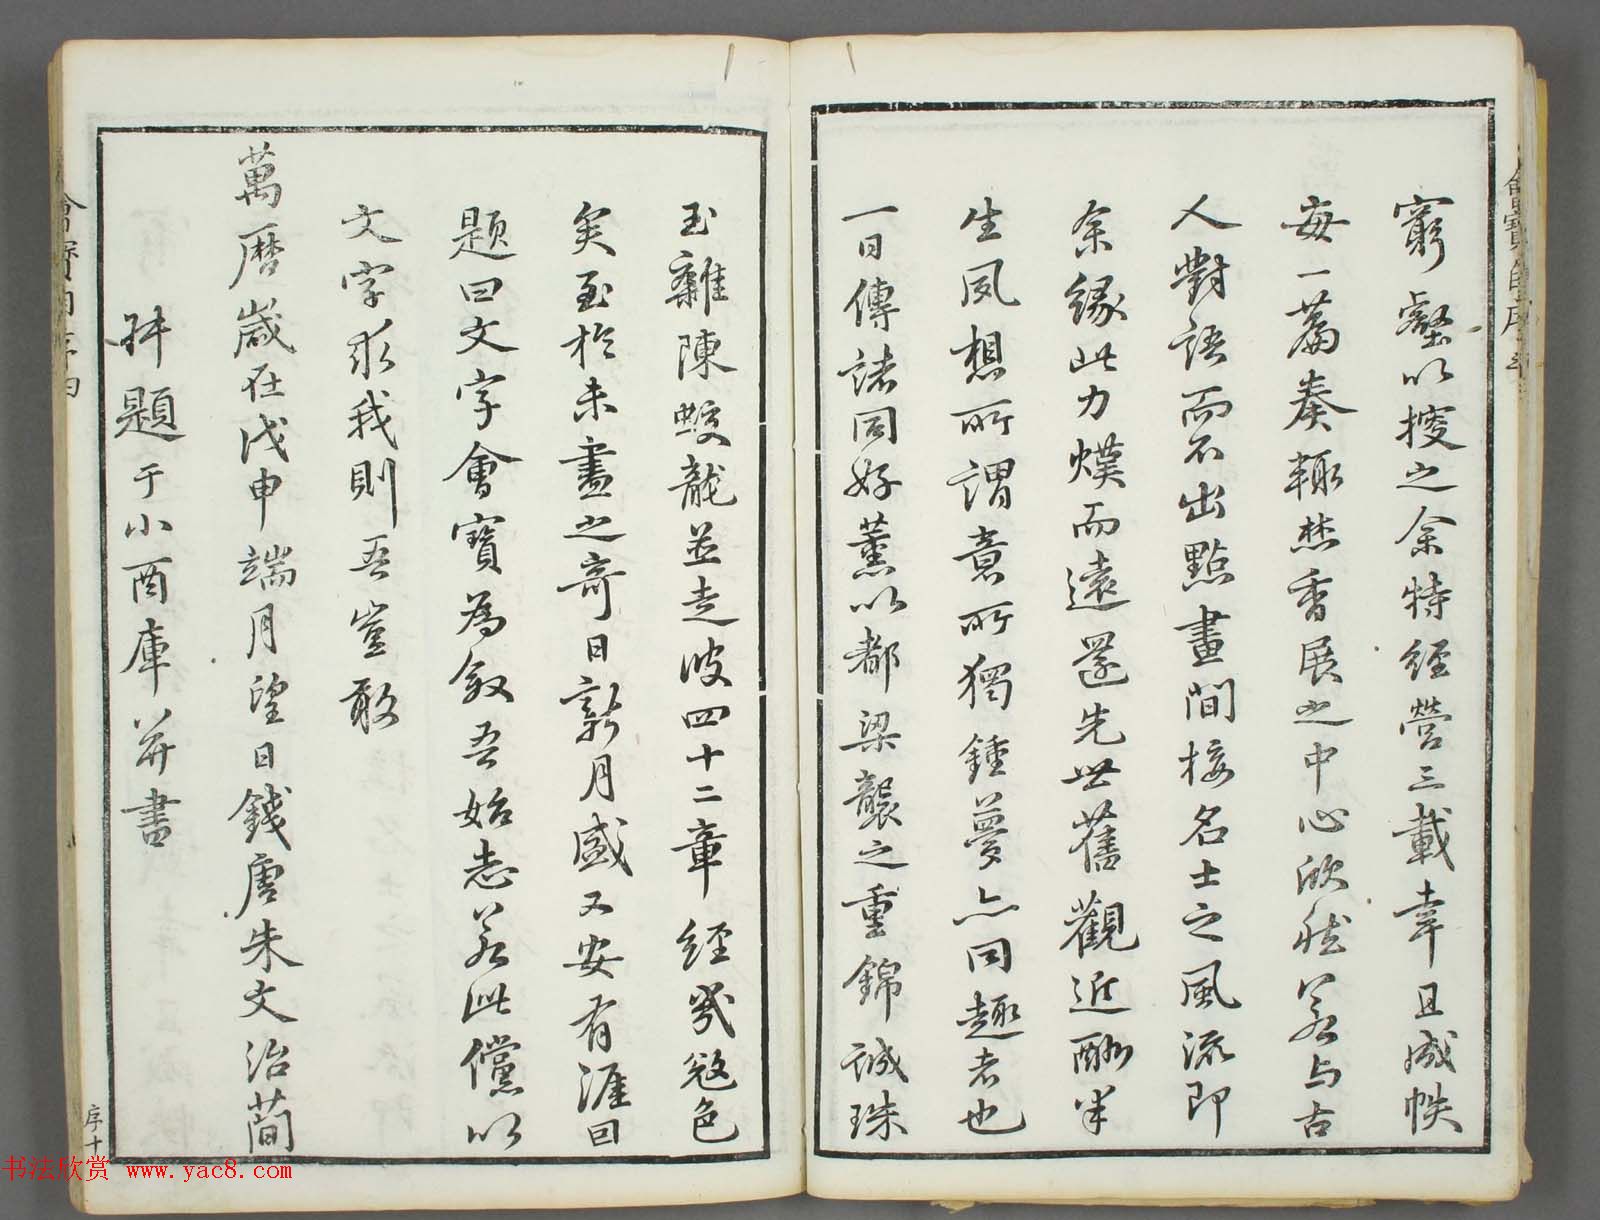 窮壑以搜之余特經營三載幸且成帙
每一篇奏輙焚香展之中心欣然若与古
人對語而不出點畫間接名士之風流即
余緣此力煐而遠還先世舊觀近酬半
生夙想所謂意所獨鍾夢亦同趣者也
一日傳諸同好薰以都梁襲之重錦誠珠
玉雜陳蛟龍並走彼四十二章經幾愆色
矣至於未盡之奇日新月盛又安有涯曰
題曰文字會寶為敘吾始志若此儻以
文字求我則吾豈敢
萬曆歲在戊申端月望日錢唐朱文治蕳
并題于小酉庫并書
會寶
序
序十
书法欣赏 www.yac8.com